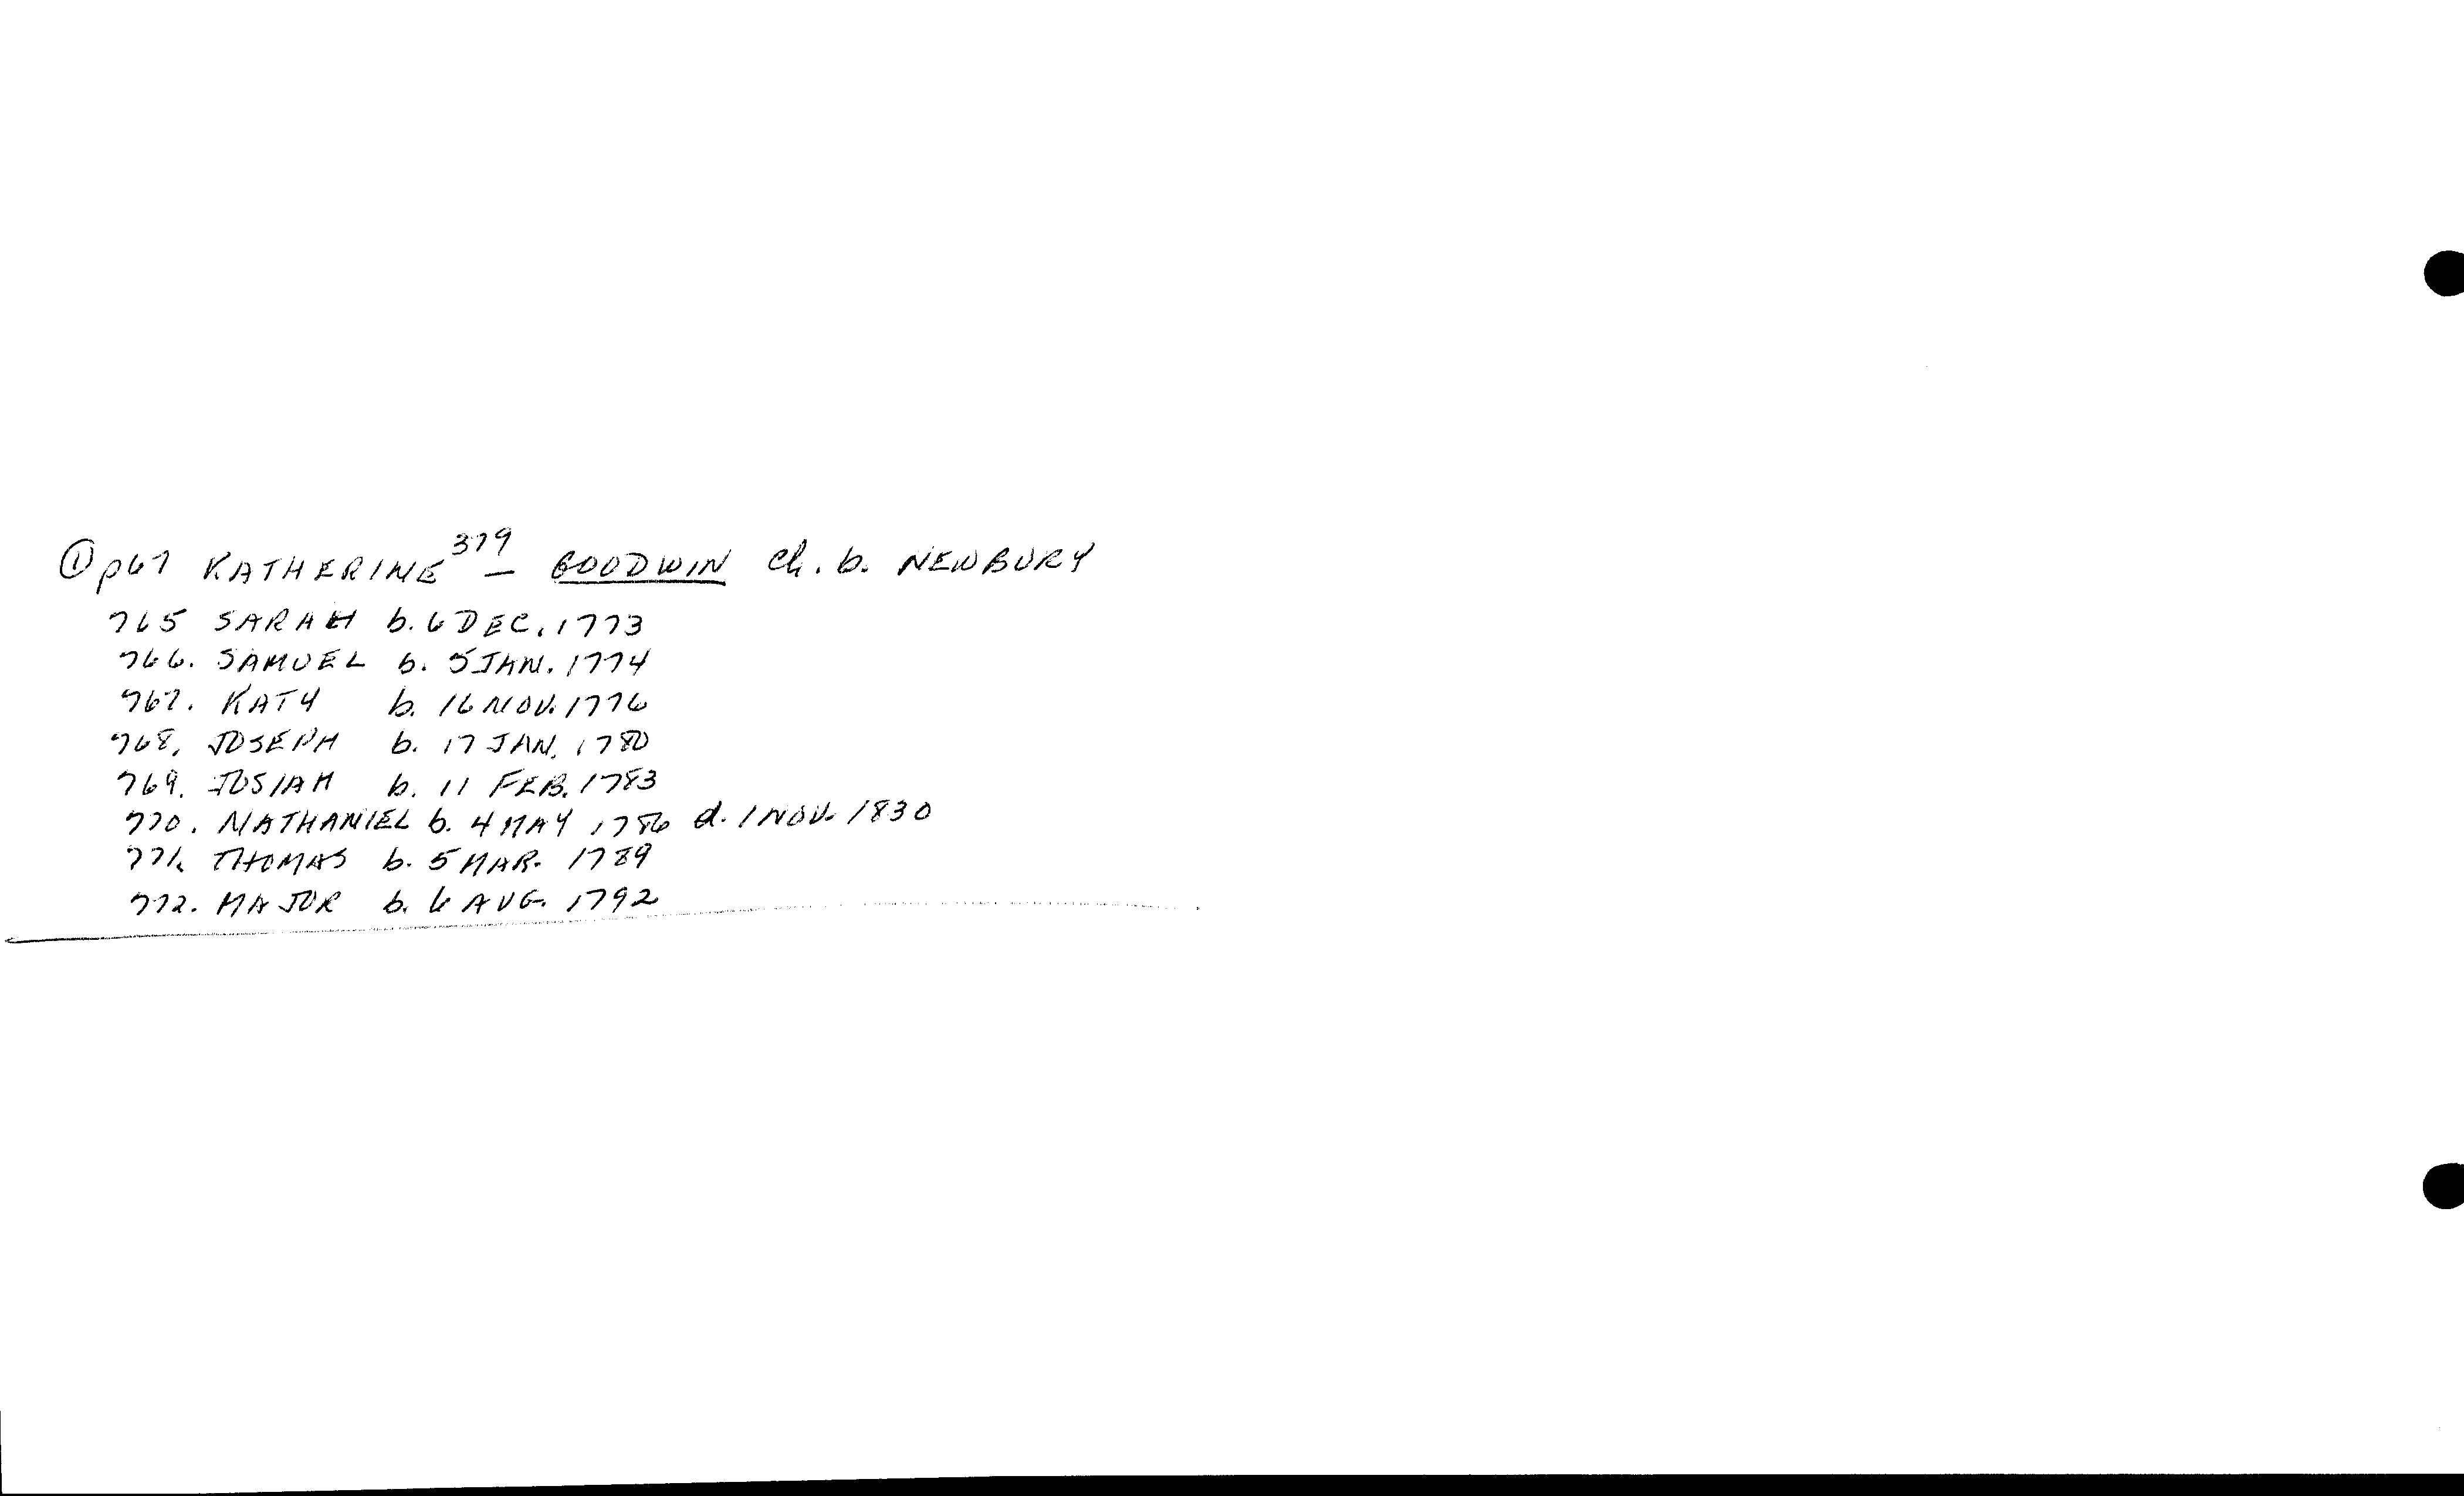 ① p67 KATHERINE³⁷⁹ — GOODWIN ch. b. NEWBURY
765 SARAH b. 6 DEC. 1773
766. SAMUEL b. 5 JAN. 1774
767. KATY b. 16 NOV. 1776
768. JOSEPH b. 17 JAN. 1780
769. JOSIAH b. 11 FEB. 1783
770. NATHANIEL b. 4 MAY 1786 d. 1 NOV. 1830
771. THOMAS b. 5 MAR. 1789
772. MAJOR b. 6 AUG. 1792